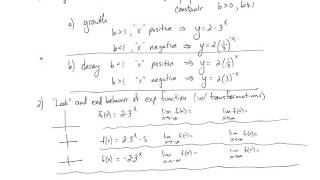 constants b>0, b≠1
a) growth
b>1, "x" positive ⇒ y=2·3^x
b<1, "x" negative ⇒ y=2(1/3)^-x
b) decay b<1 "x" positive ⇒ y=2(1/3)^x
b>1, "x" negative ⇒ y=2(3)^-x
2) "Look" and end behavior of exp function (w/ transformations)
f(x)=2·3^x lim x→-∞ f(x)= lim x→∞ f(x)=
f(x)=2·3^x-5 lim x→-∞ f(x)= lim x→∞ f(x)=
f(x)=-2·3^x lim x→-∞ f(x)= lim x→∞ f(x)=